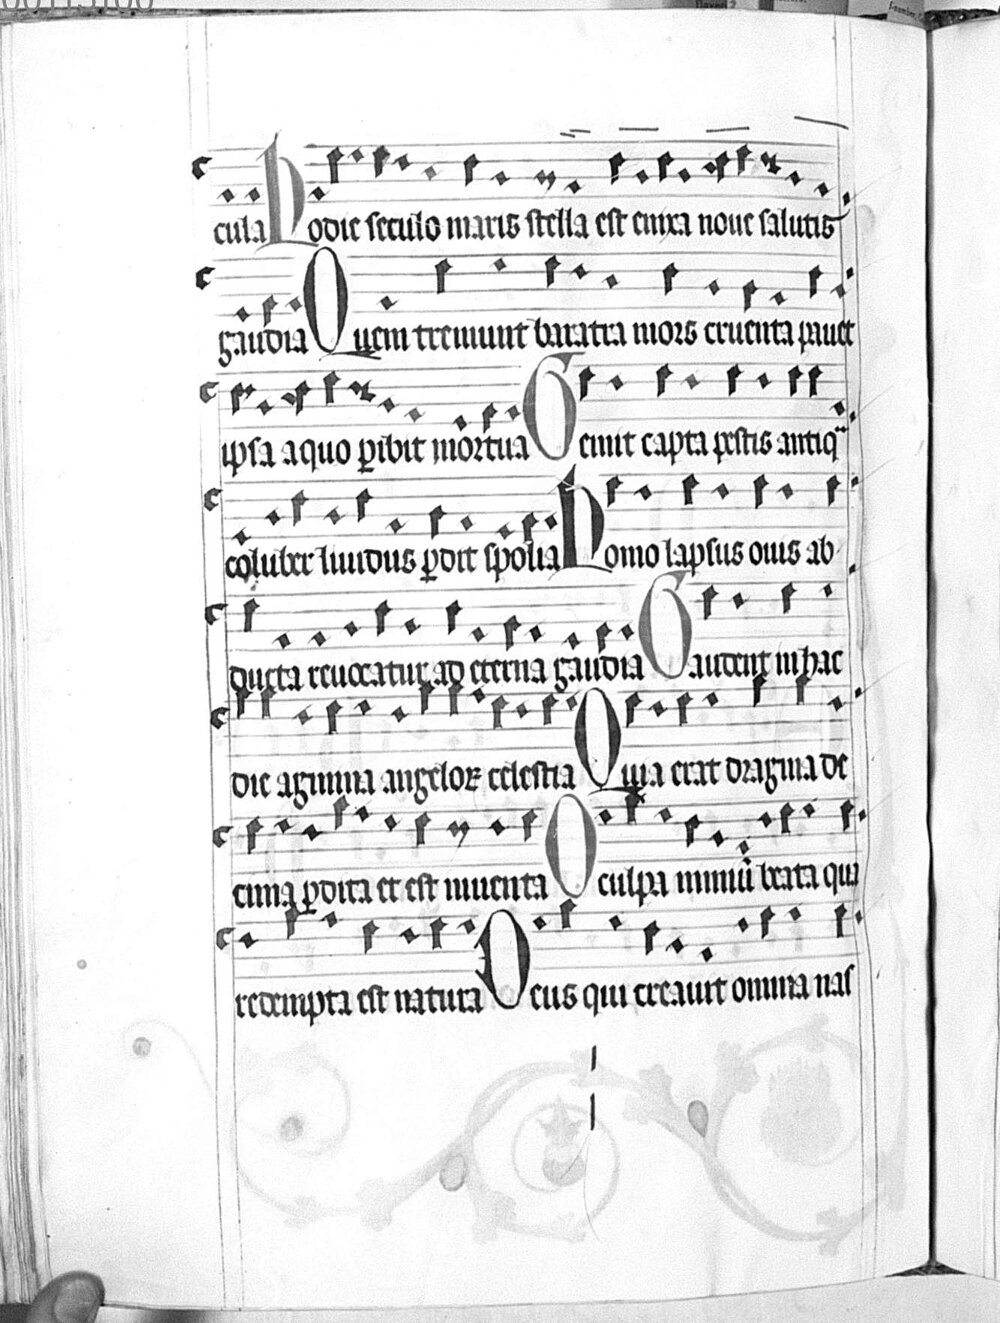 cula Hodie seculo maris stella est enixa noue salutis
gaudia Quem tremunt baratra mors cruenta pauet
ipsa a quo ꝑibit mortua Gemit capta pestis antiqᷓ
coluber liuidus ꝑdit spolia Homo lapsus ouis ab
ducta reuocatur ad eterna gaudia Gaudent in hac
die agmina angeloꝝ celestia Quia erat dragma de
cima ꝑdita et est inuenta O culpa nimiū beata qua
redempta est natura Deus qui creauit omnia nas